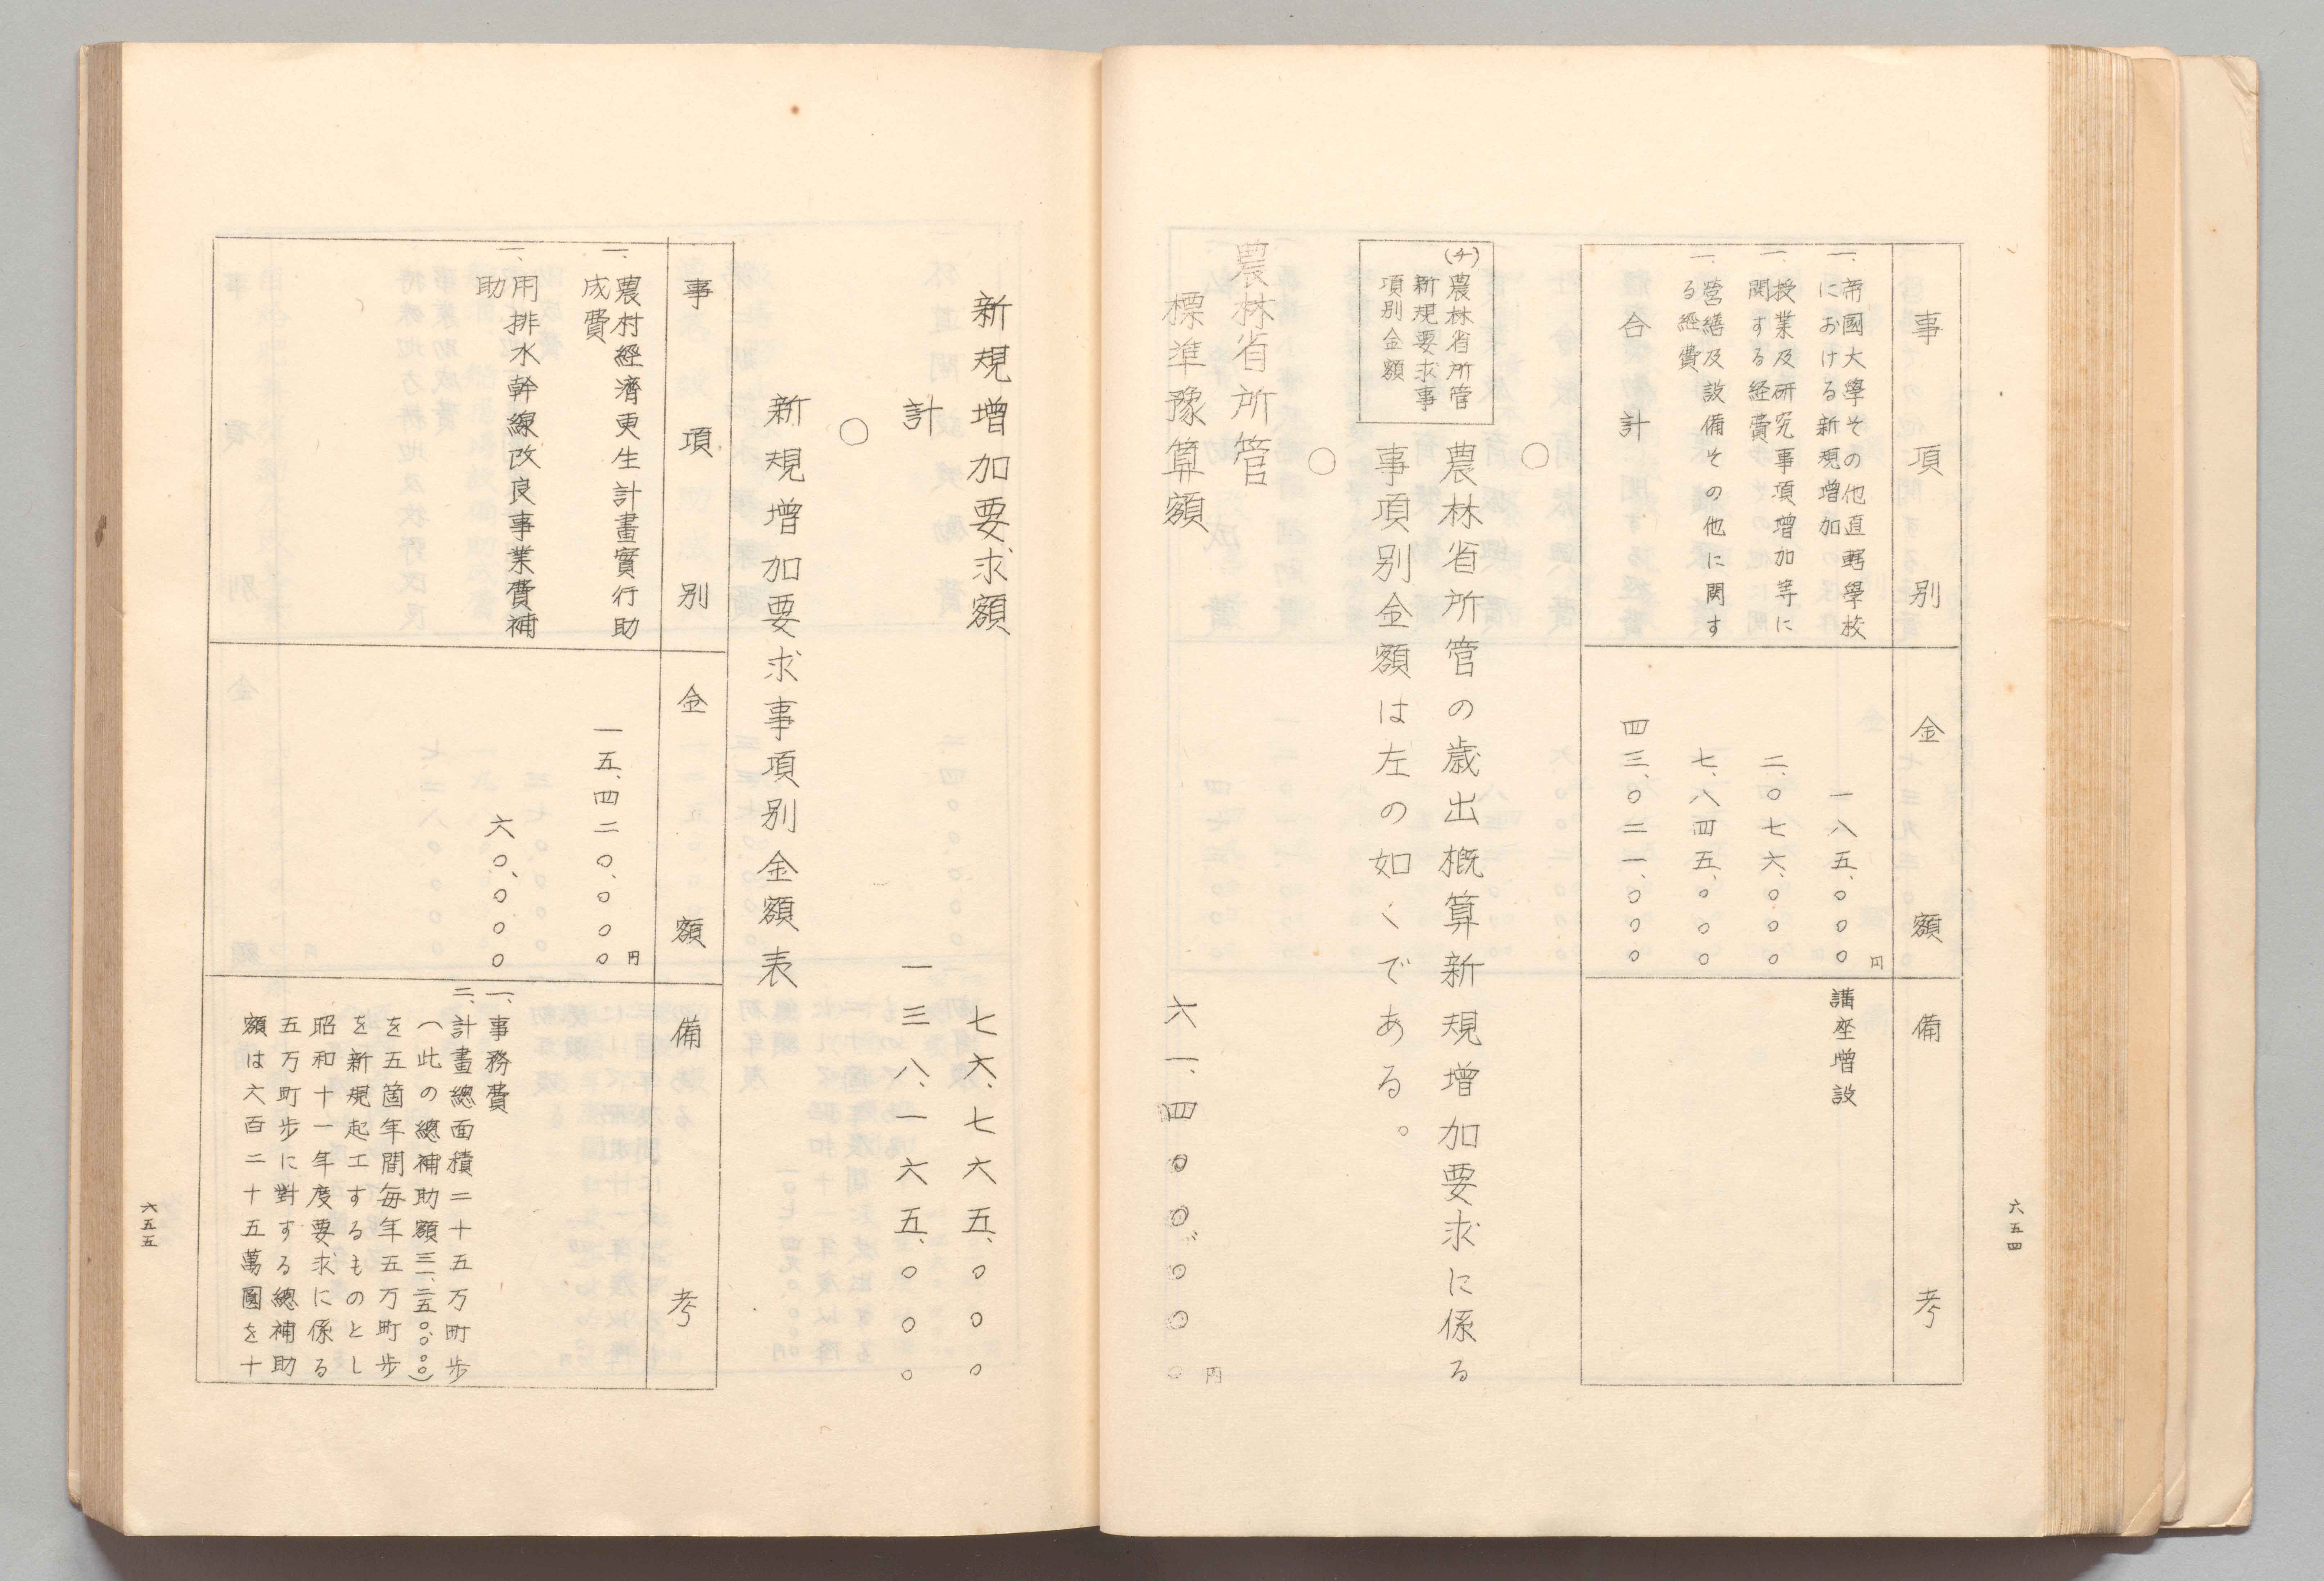 六五四
事項別 金額 備考
一、帝國大學その他直轄學校
における新規増加
一八五、〇〇〇円
講座増設
一、授業及研究事項増加等に
関する経費
二、〇七六、〇〇〇
一、營繕及設備その他に関す
る経費
七、八四五、〇〇〇
合計
四三、〇二一、〇〇〇
○
(チ)農林省所管
新規要求事
項別金額
農林省所管の歳出概算新規増加要求に係る
事項別金額は左の如くである。
○
農林省所管
標準豫算額 六一、四〇〇、〇〇〇円
新規増加要求額 七六、七六五、〇〇〇
計 一三八、一六五、〇〇〇
○
新規増加要求事項別金額表
事項別 金額 備考
一、農村經濟更生計畫實行助
成費
一五、四二〇、〇〇〇円
一、用排水幹線改良事業費補
助
六〇、〇〇〇
一、事務費
二、計畫總面積二十五万町歩
(此の總補助額三一、二五〇、〇〇〇)
を五箇年間毎年五万町歩
を新規起工するものとし
昭和十一年度要求に係る
五万町歩に對する總補助
額は六百二十五萬圓を十
六五五